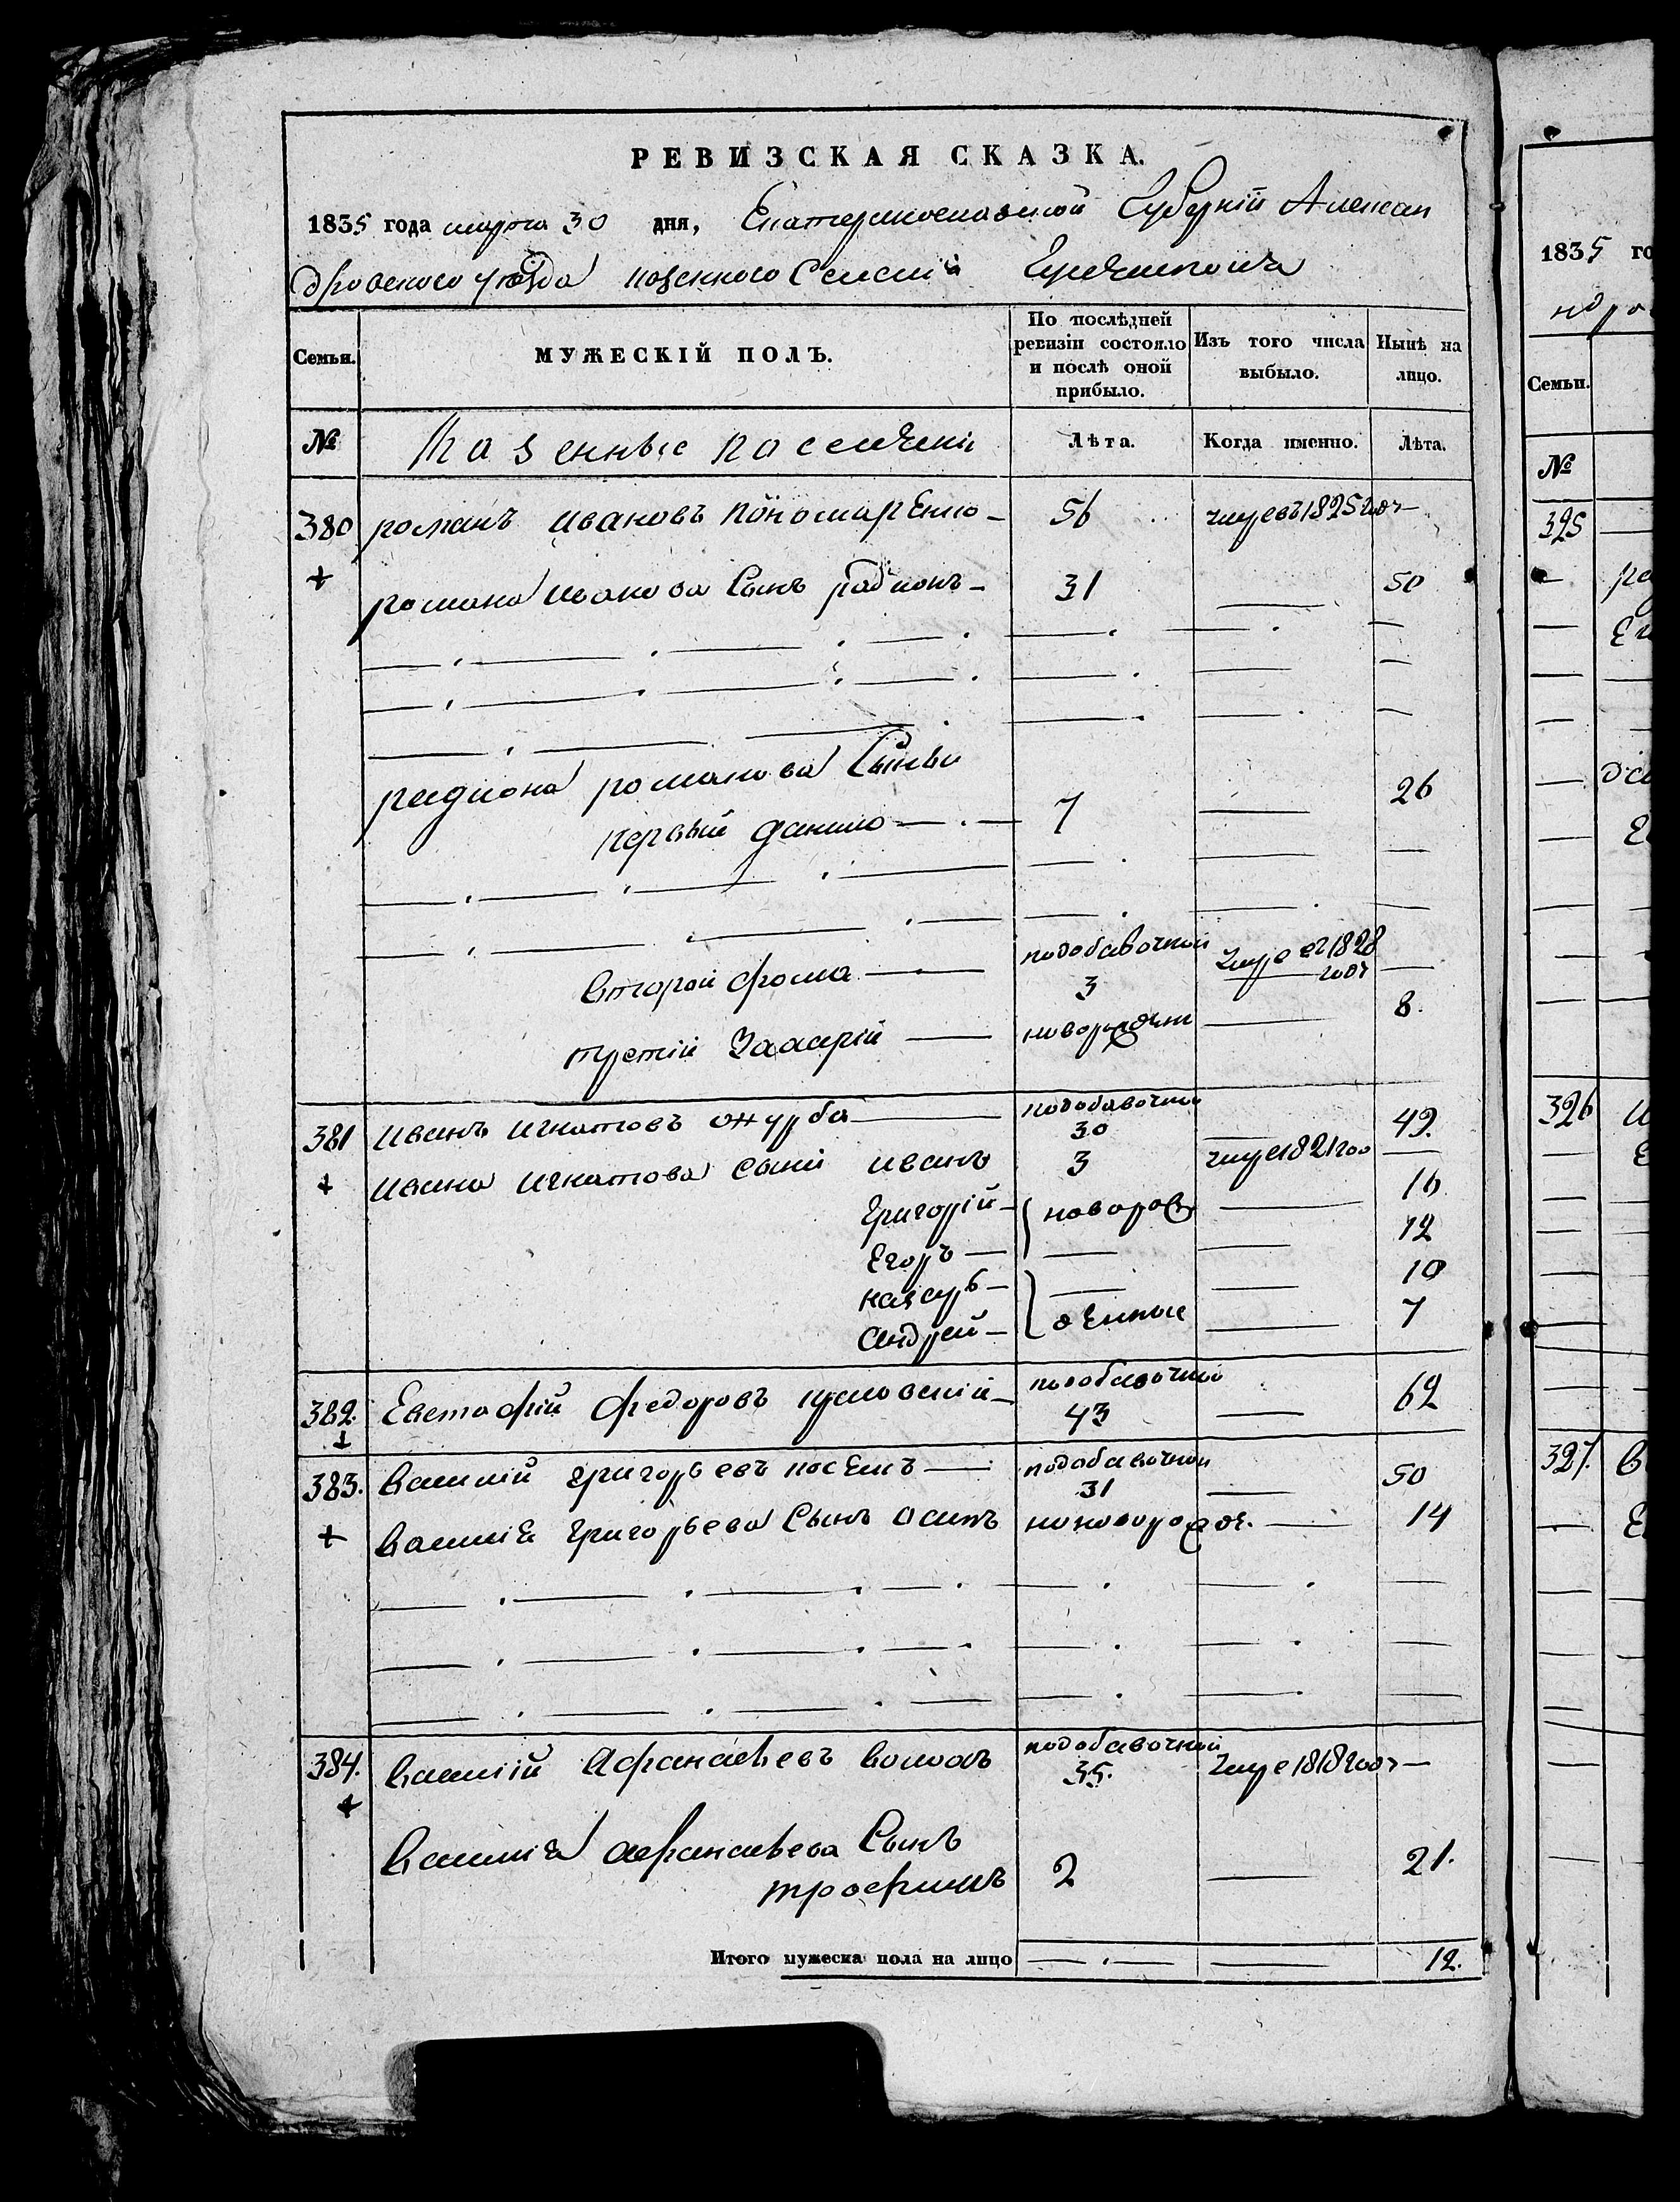 РЕВИЗСКАЯ СКАЗКА.
1835 года марта 30 дня, Екатеринославской Губерніи Александровскаго уезда казенного Селенія
Семьи. МУЖЕСКІЙ ПОЛЪ. По послѣдней ревизіи состояло и послѣ оной прибыло. Изъ того числа выбыло. Нынѣ на лицо.
№ Казенные поселяне Лѣта. Когда именно. Лѣта.
380 романъ ивановъ пономаренко 56 умре въ 1825 годе —
романа иванова Сынъ радионъ 31 — 50
радиона романова Сыны
первый данило 7 — 26
второй фома подобавочной 3 умре въ 1828 годе —
третій Захарій новорожден — 8.
381 иванъ игнатовъ подобавочной 30 — 49.
ивана игнатова сыни иванъ 3 умре 1821 год —
Григорій новорож — 16
Егоръ — — 12
назаръ — — 10
андрей денные — 7
382. Евстафій федоровъ подобавочной 43 — 62
383. василій григорьевъ подобавочной 31 — 50
василія григорьева Сынъ осипъ — 14
384. василій афанасьевъ подобавочной 35. умре 1818 годе —
василія афанасьева Сынъ
трофимъ 2 — 21.
Итого мужеска пола на лицо — — 12.
1835 го
Семьи.
№
325
326
327.